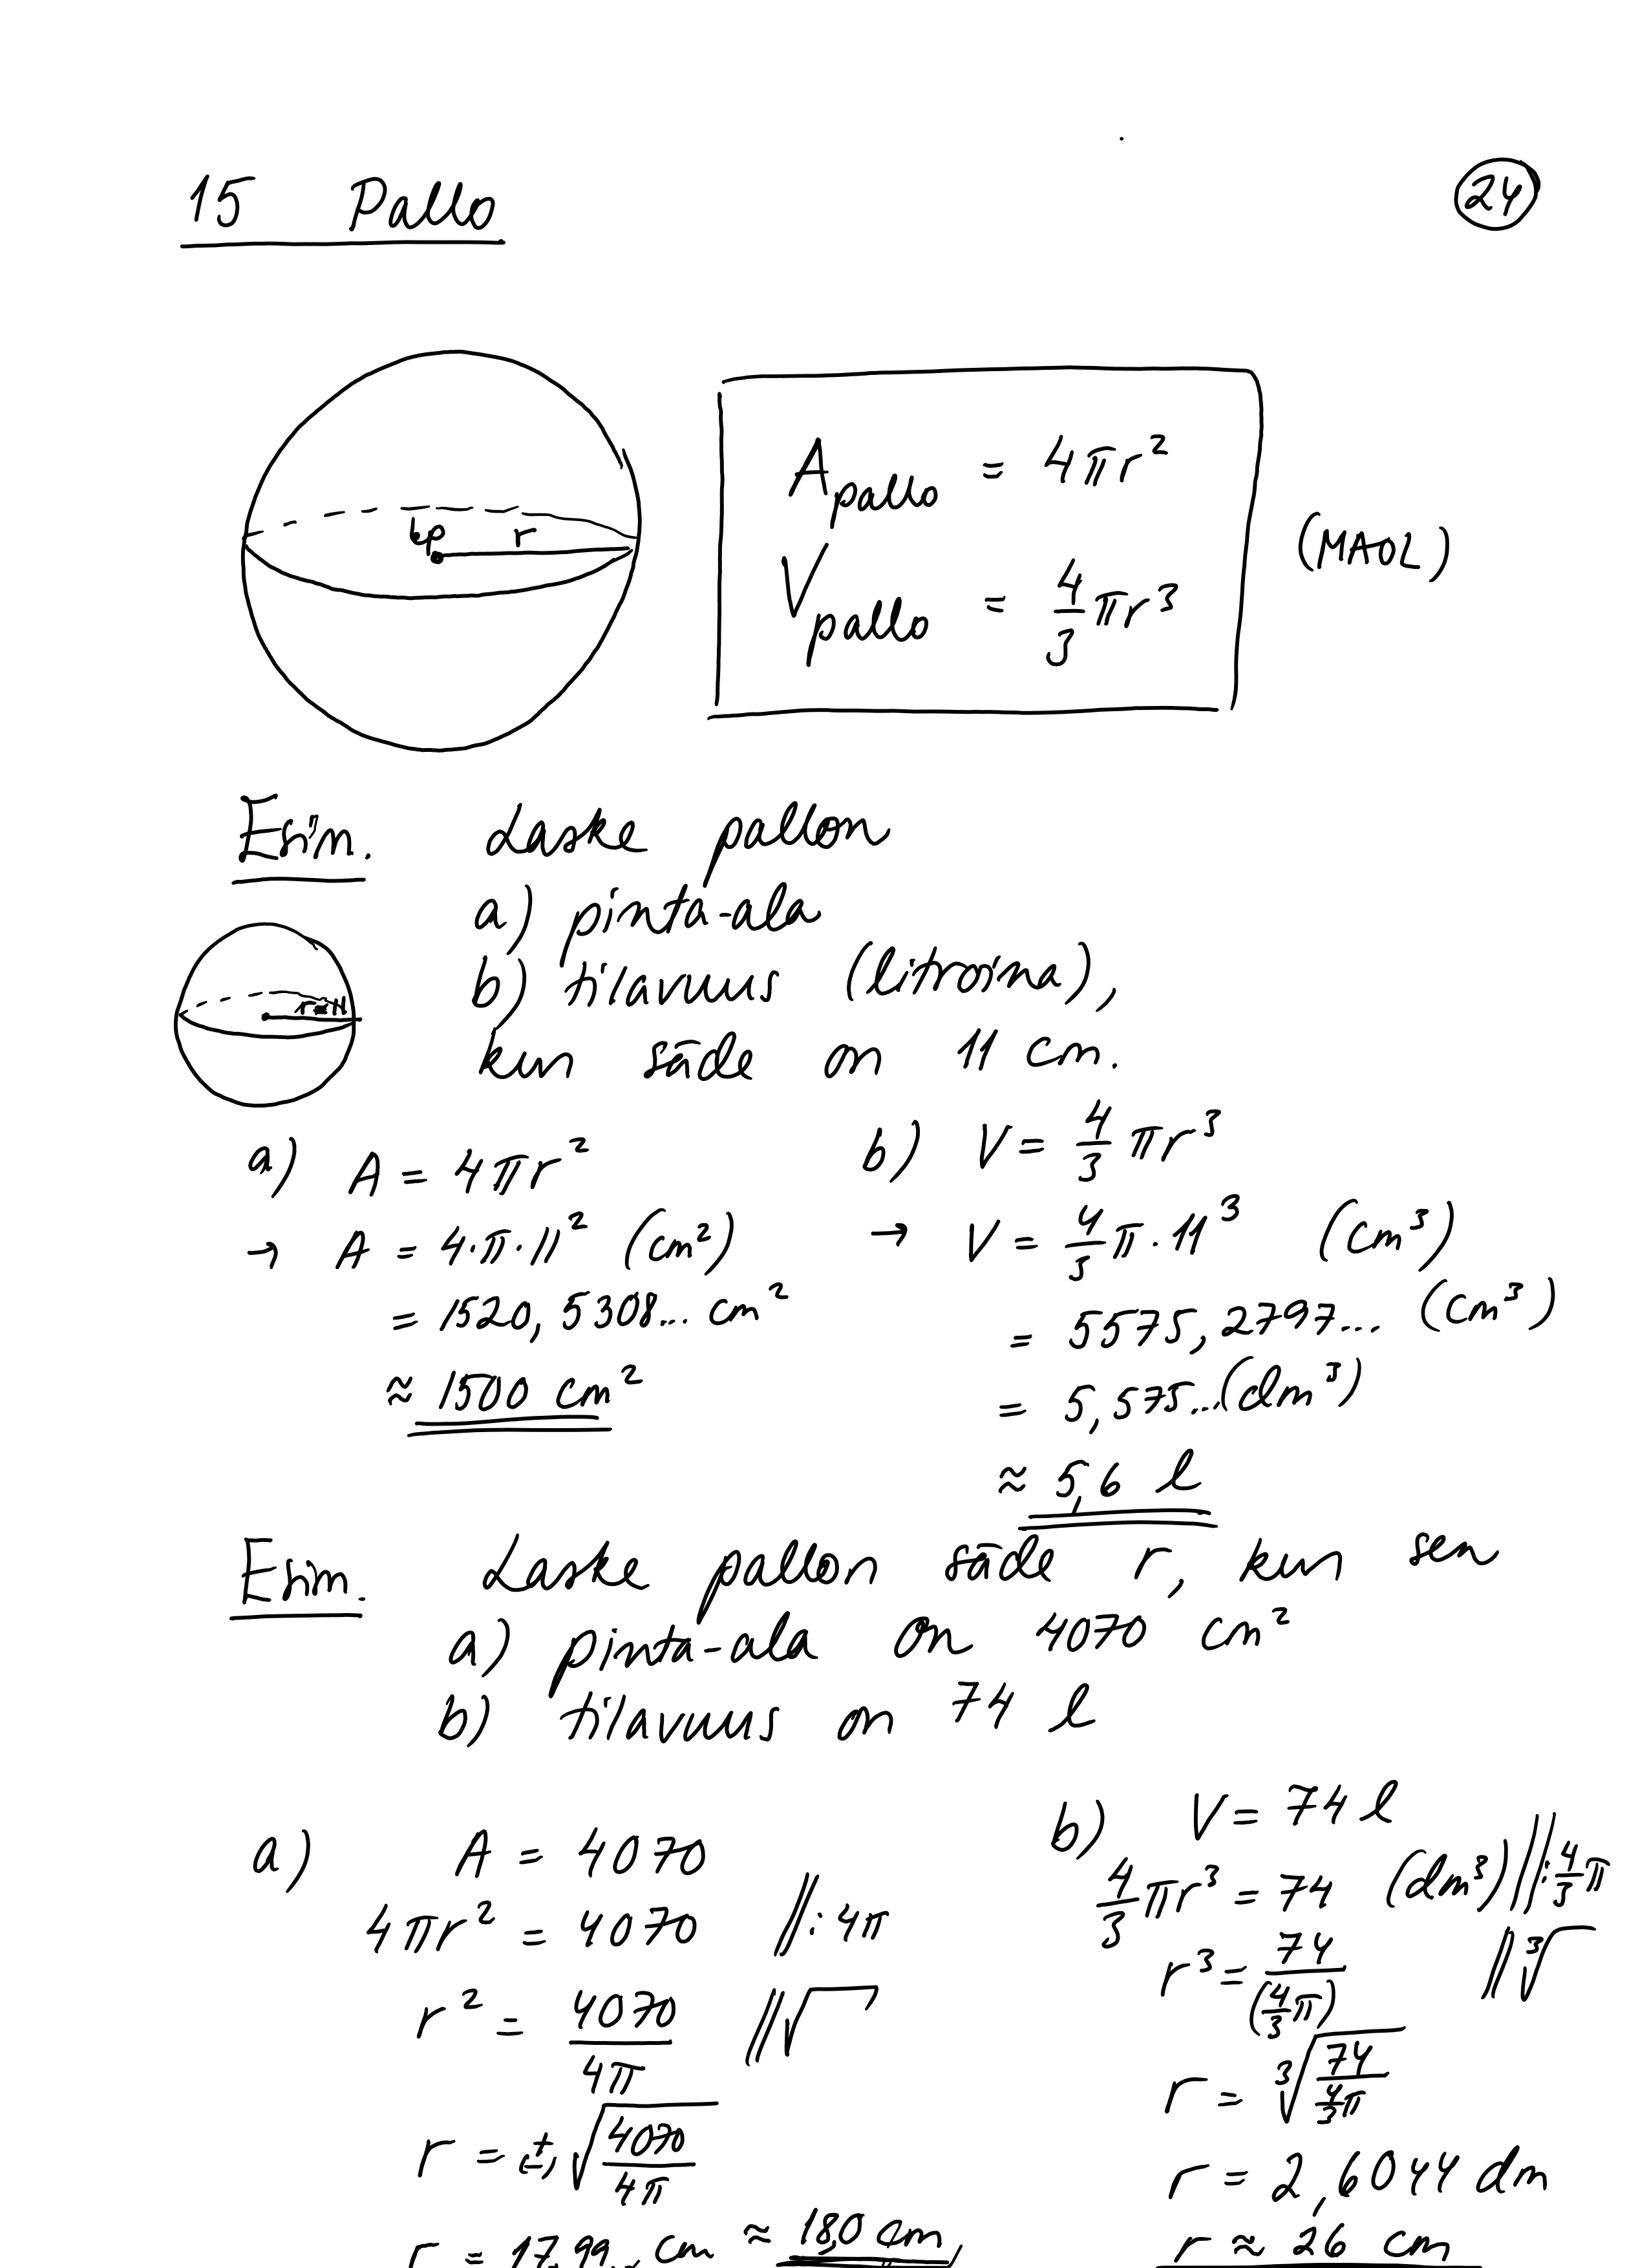 15 Pallo
24
kp r
A_pallo = 4πr²
V_pallo = 4/3 πr³
(MAOL)
Esim. Laske pallon
a) pinta-ala
b) tilavuus (litroina),
kun säde on 11 cm.
r=11
a) A = 4πr²
→ A = 4·π·11² (cm²)
= 1520,5308... cm²
≈ 1500 cm²
b) V = 4/3 πr³
→ V = 4/3 π·11³ (cm³)
= 5575,2797... (cm³)
= 5,575...(dm³)
≈ 5,6 l
Esim. Laske pallon säde r, kun sen
a) pinta-ala on 4070 cm²
b) tilavuus on 74 l
a) A = 4070
4πr² = 4070 ||:4π
r² = 4070/4π ||√
r = (±)√(4070/4π)
r = 17,99... cm ≈ 18,0 cm
b) V = 74 l
4/3 πr³ = 74 (dm³) ||:4/3 π
r³ = 74/(4/3 π) ||³√
r = ³√(74/(4/3 π))
r = 2,6044 dm
r ≈ 26 cm